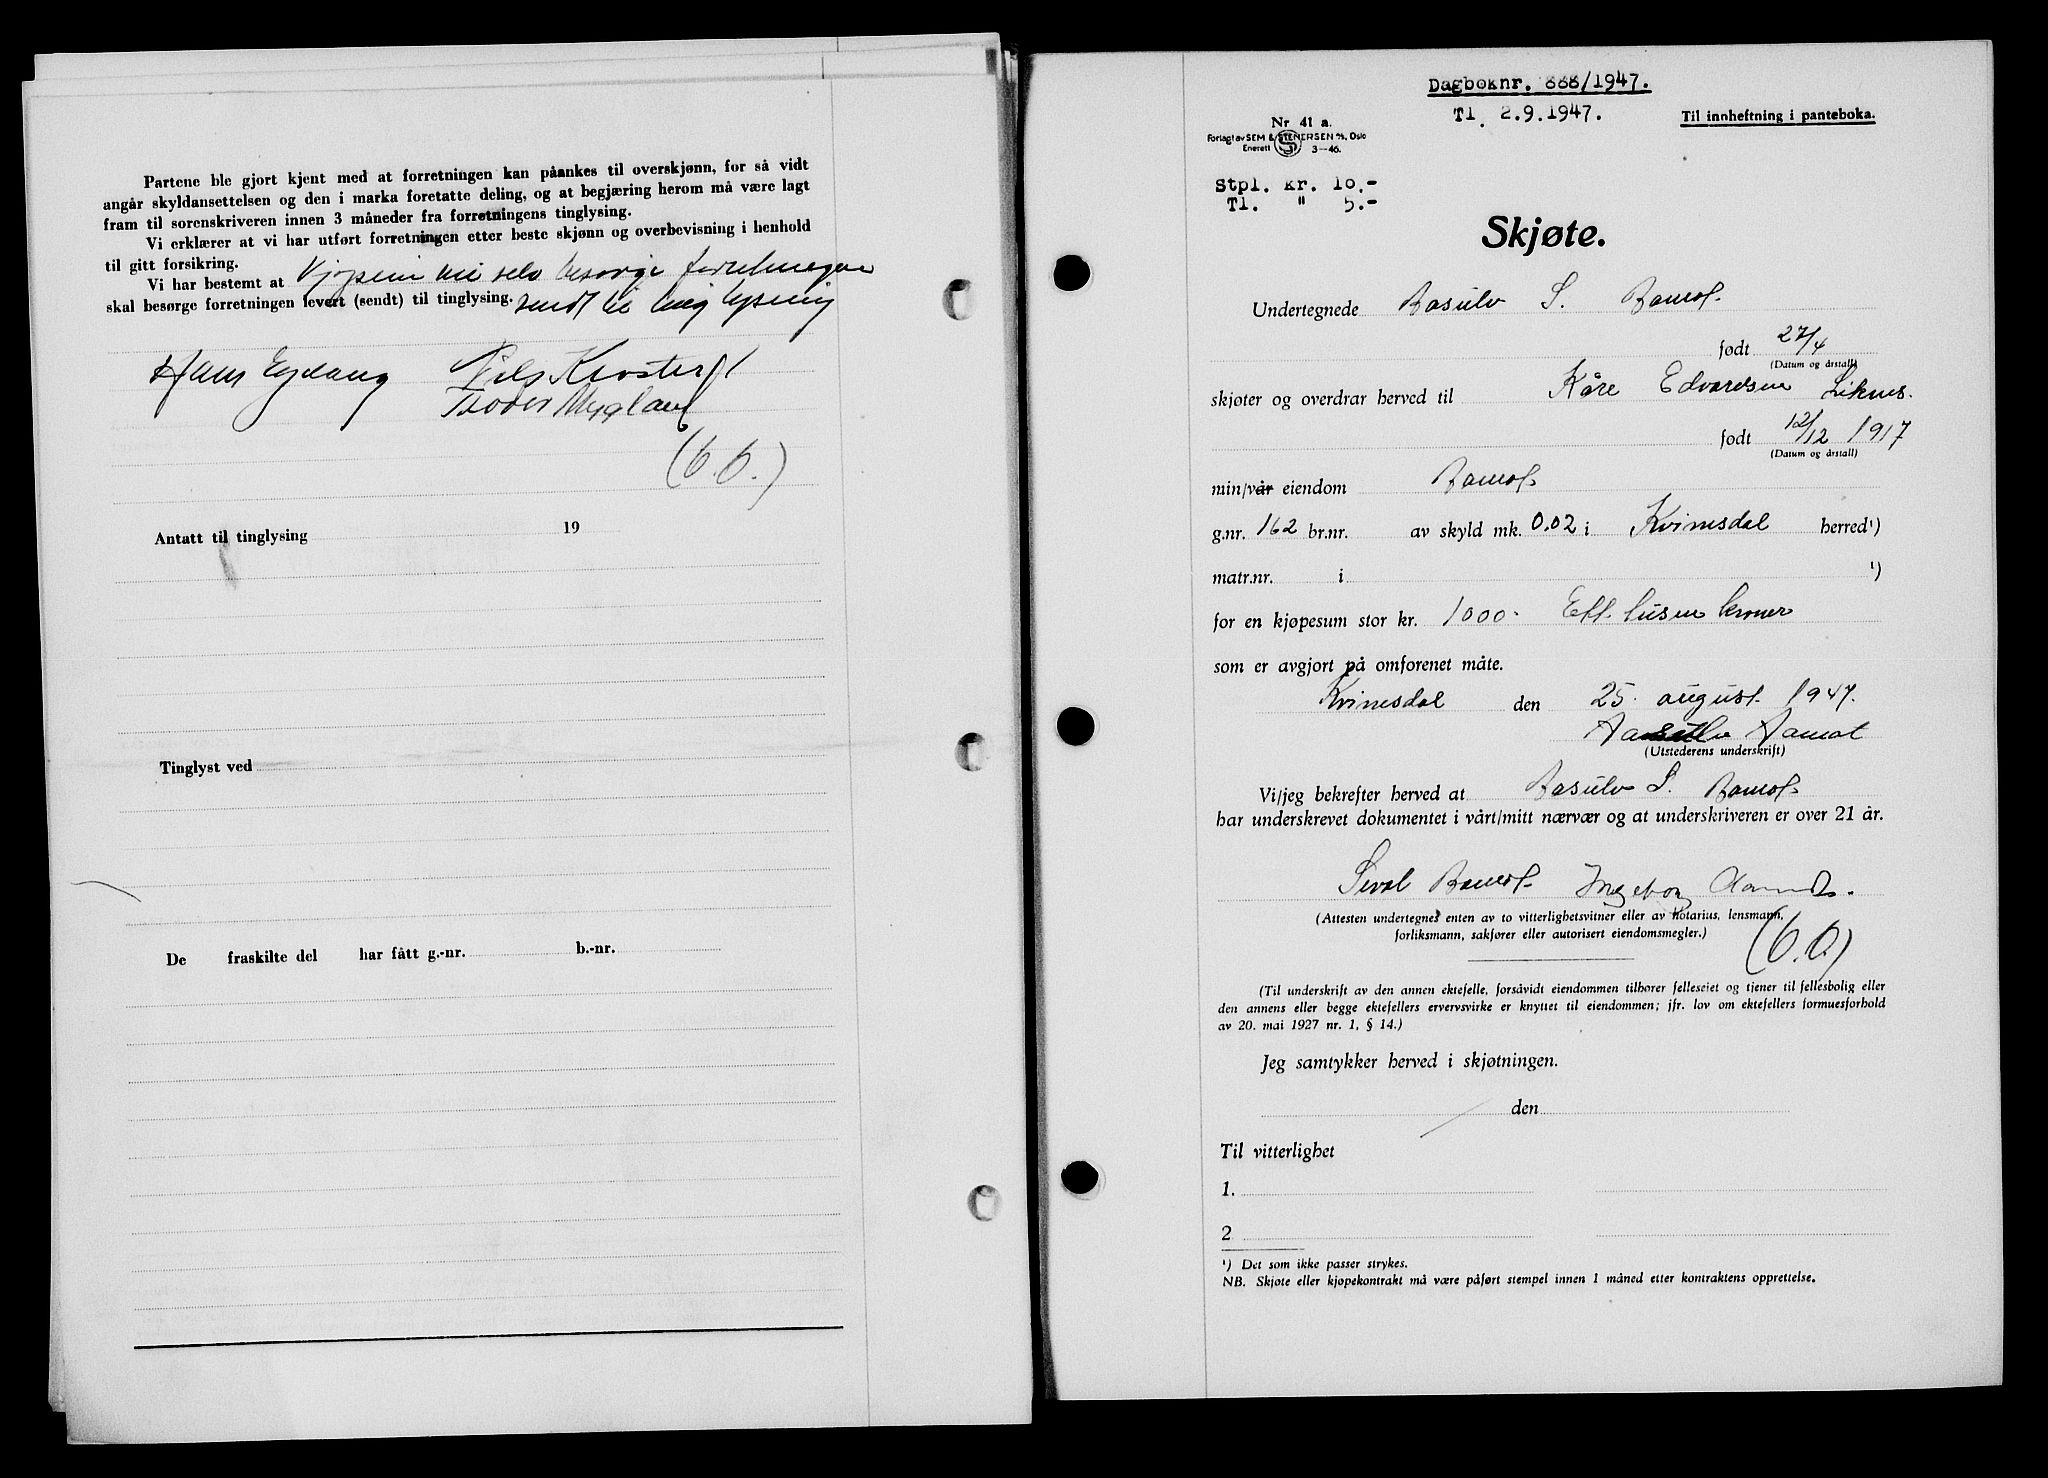 Partene ble gjort kjent med at forretningen kan påankes til overskjønn, for så vidt
angår skyldansettelsen og den i marka foretatte deling, og at begjæring herom må være lagt
fram til sorenskriveren innen 3 måneder fra forretningens tinglysing.
Vi erklærer at vi har utført forretningen etter beste skjønn og overbevisning i henhold
til gitt forsikring.
Vi har bestemt at selv besørge forretningen
skal besørge forretningen levert (sendt) til tinglysing. sendt
Hans Egeland
Antatt til tinglysing 19
Tinglyst ved
De fraskilte del har fått g.-nr. b.-nr.
Dagboknr. 888/1947.
Tl. 2.9.1947.
Til innheftning i panteboka.
Nr 41 a.
Forlagt av SEM & STENERSEN A/S, Oslo
Enerett S 3-46.
Stpl. kr. 10.-
Tl. " 5.-
Skjøte.
Undertegnede Aasulv S. Aamot
født 27/4
(Datum og årstall)
skjøter og overdrar herved til Kåre Edvardsen Liknes.
født 12/12 1917
(Datum og årstall)
min/vår eiendom Aamot
g.nr. 162 br.nr. av skyld mk. 0.02 i Kvinesdal herred¹)
matr.nr. i ¹)
for en kjøpesum stor kr. 1000- Ett tusen kroner
som er avgjort på omforenet måte.
Kvinesdal den 25. august 1947.
Aasulv Aamot
(Utstederens underskrift)
Vi/jeg bekrefter herved at Aasulv S. Aamot
har underskrevet dokumentet i vårt/mitt nærvær og at underskriveren er over 21 år.
Sival Aamot Ingeborg Aamodt.
(Attesten undertegnes enten av to vitterlighetsvitner eller av notarius, lensmann,
forliksmann, sakfører eller autorisert eiendomsmegler.)
(Til underskrift av den annen ektefelle, forsåvidt eiendommen tilhører felleseiet og tjener til fellesbolig eller
den annens eller begge ektefellers ervervsvirke er knyttet til eiendommen; jfr. lov om ektefellers formuesforhold
av 20. mai 1927 nr. 1, § 14.)
Jeg samtykker herved i skjøtningen.
den
Til vitterlighet
1.
2
¹) Det som ikke passer strykes.
NB. Skjøte eller kjøpekontrakt må være påført stempel innen 1 måned etter kontraktens opprettelse.